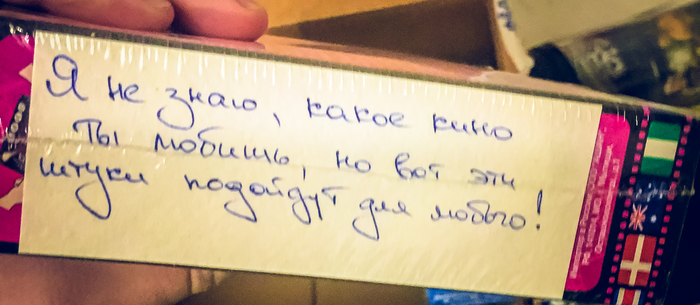 Я не знаю, какое кино
ты любишь, но вот эти
штуки подойдут для любого!